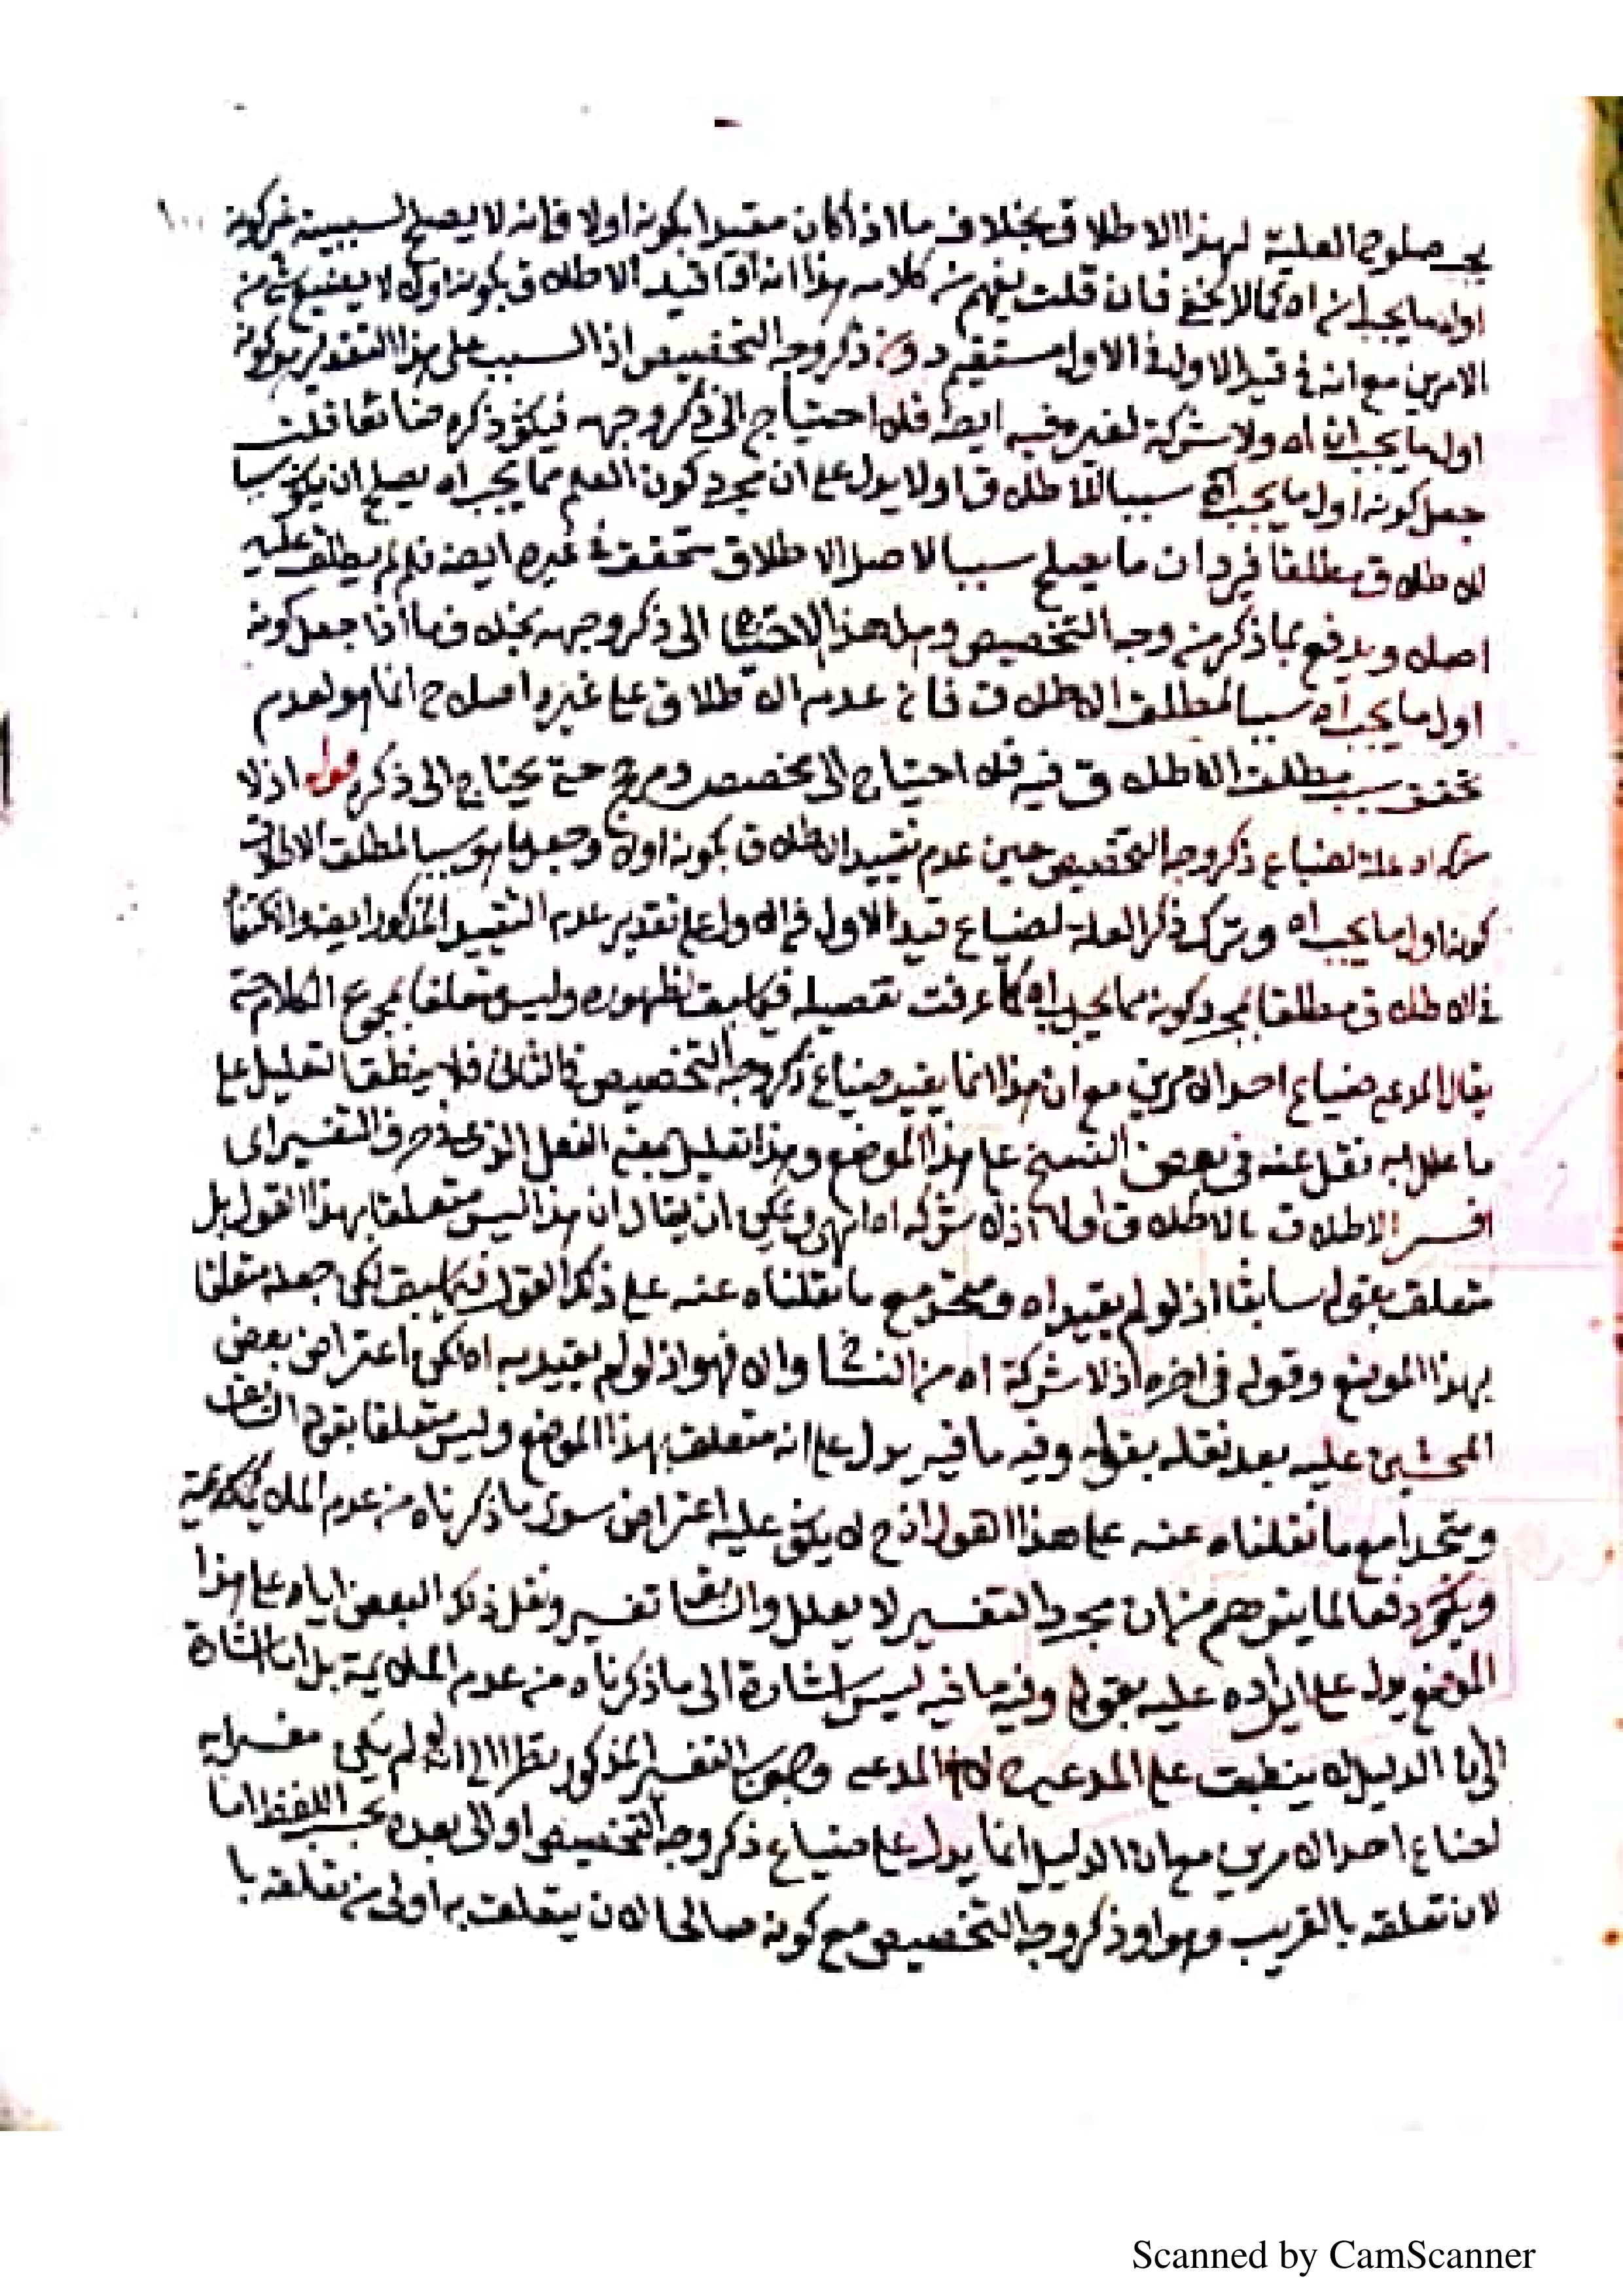 يجـ صلوح العلية لهذا الاطلاق بخلاف ما اذا كان مقيدا بكونه اولا فانه لا يصلح لسببيته غير كونه ١٠٠
اول ما يجب ان اه كما لا يخفى فان قلت يفهم من كلامه هذا انه اذا قيد الاطلاق بكونه اولا لا يضيع شئ من
الامرين مع انه في قيد الاول في الاول مستقيم دون ذكر وجه التخصيص اذ السبب على هذا التقدير هو كونه
اول ما يجب ان اه ولا شركة لغيره فيه ايضا فلا احتياج الى ذكر وجهه فيكون ذكره ضائعا قلت
جعل كونه اول ما يجب اه سببا للاطلاق اولا يدل على ان مجرد كون العلم مما يجب اه يصلح ان يكون سببا
للاطلاق مطلقا فيرد ان ما يصلح سببا لاصل الاطلاق متحقق في غيره ايضا فلم لم يطلق عليه
اصلا ويدفع بما ذكر من وجه التخصيص وهذا الاحتياج الى ذكر وجهه بخلاف ما اذا جعل كونه
اول ما يجب اه سببا لمطلق الاطلاق فان عدم الاطلاق على غيره اصلا ح انما هو لعدم
تحقق سبب مطلق الاطلاق فيه فلا احتياج الى مخصص ومرجح حتى يحتاج الى ذكره قوله اذ لا
شركة اه علة لضياع ذكر وجه التخصيص حين عدم تقييد الاطلاق بكونه اولا وجعل ما هو سببا لمطلق الاطلاق
كونه اول ما يجب اه وترك ذكر العلة لضياع قيد الاول في الاول على تقدير عدم التقييد المذكور ايضا لانكشافه
في الاطلاق مطلقا بمجرد كونه مما يجب اه كما عرفت تفصيله فيما سبق لظهوره وليس متعلقا بمجموع الكلام حتى
يقال المدعى ضياع احد الامرين مع ان هذا انما يفيد ضياع ذكر وجه التخصيص في الثاني فلا ينطبق التعليل على
ما علل به نقل عنه في بعض النسخ على هذا الموضع وهذا تعليل لمعنى الفعل الذي في حرف التفسير اى
افسر الاطلاق بالاطلاق اولا اذ لا شركة اه انتهى ويمكن ان يقال ان هذا ليس متعلقا بهذا القول بل
متعلق بقوله سابقا اذ لو لم يقيد اه ومتحد مع ما نقلناه عنه على ذلك القول فيما سبق لكن جعله متعلقا
بهذا الموضع وقوله في اخره اذ لا شركة اه من النساخ والا فهو اذ لو لم يقيد به اه لكن اعتراض بعض
المحشين عليه بعد نقله بقوله وفيه ما فيه يدل على انه متعلق بهذا الموضع وليس متعلقا بقوله السابق
ومتحدا مع ما نقلناه عنه على هذا القول اذ ح لا يكون عليه اعتراض سوى ما ذكرناه من عدم الملائمة
ويكون دفعا لما يتوهم من ان مجرد التفسير لا يعلل والسابق تفسير ونقل ذلك البعض اياه على هذا
الموضع يدل على ايراده عليه بقوله وفيه ما فيه ليس اشارة الى ما ذكرناه من عدم الملائمة بل اما اشارة
الى ان الدليل لا ينطبق على المدعى لان المدعى وجوب التفسير المذكور نظرا الى انه لو لم يكن مفسرا به
لضاع احد الامرين مع ان الدليل انما يدل على ضياع ذكر وجه التخصيص او الى بعده بحسب اللفظ اما
لان تعلقه بالقريب وهو ذكر وجه التخصيص مع كونه صالحا لان يتعلق به اولى من تعلقه با
Scanned by CamScanner